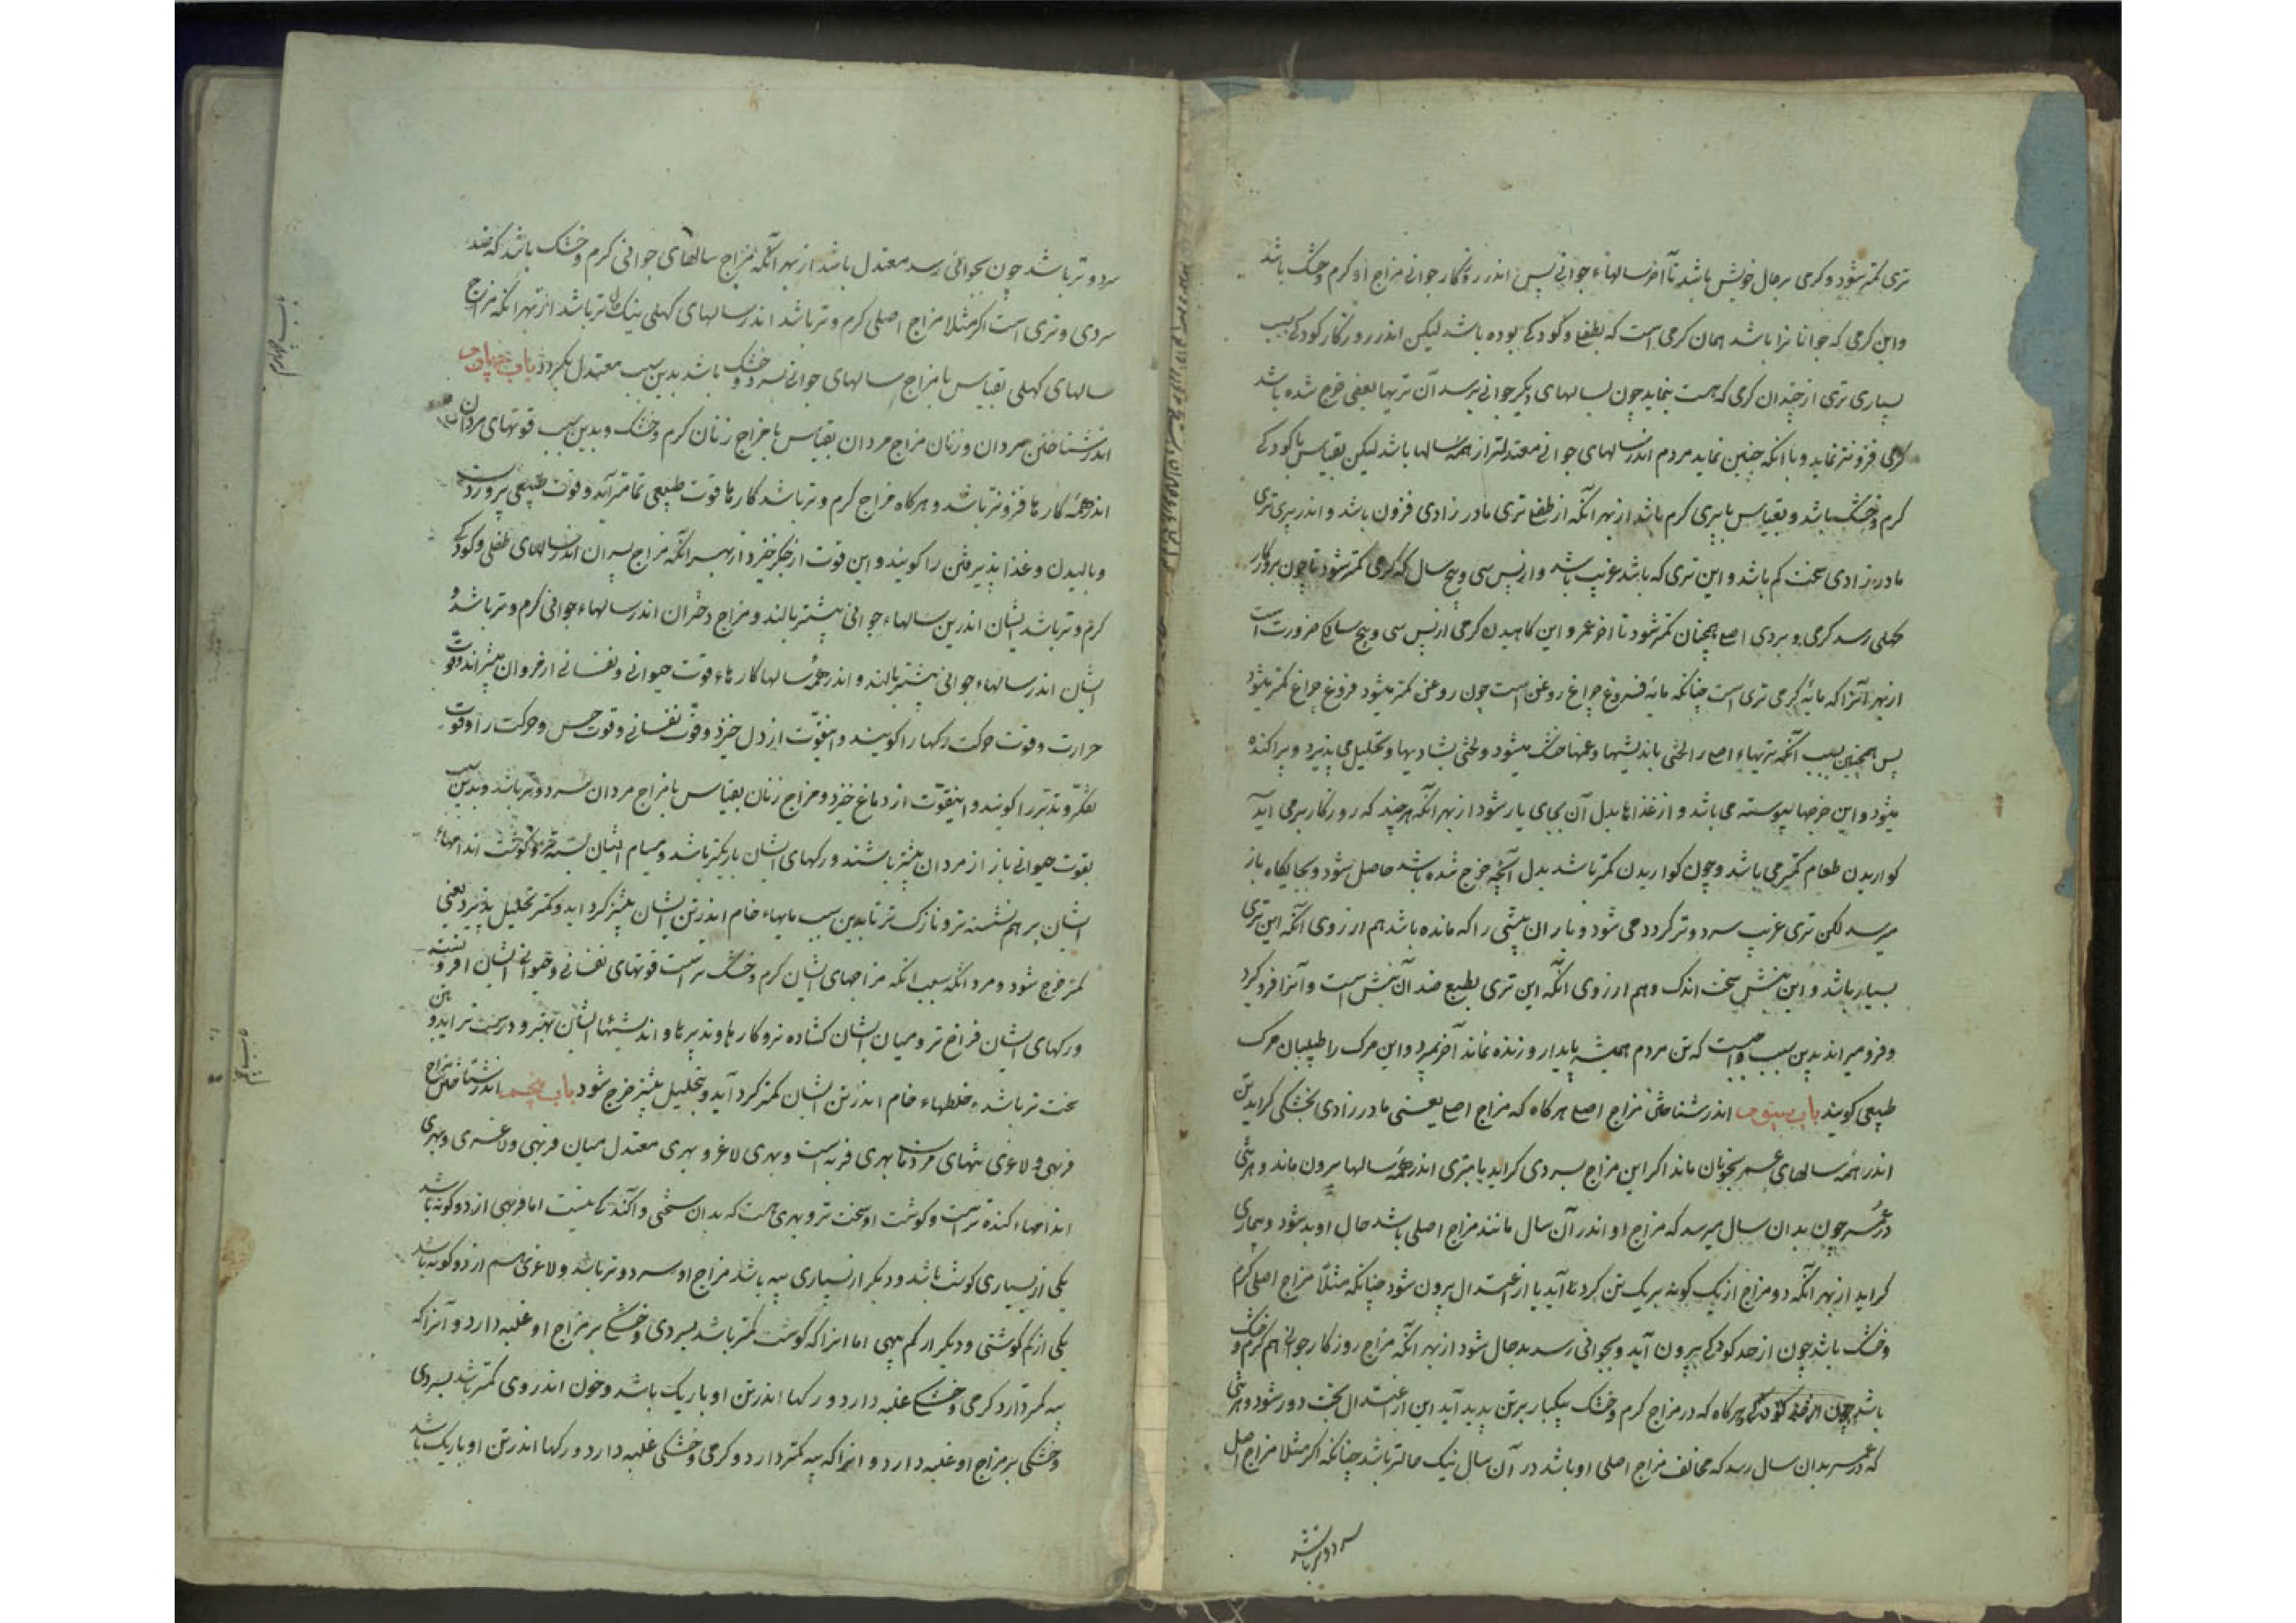 تری کمتر شود و کرمی بر حال خویش باشد تا آخر سالهاء جوانی پس اندر روزکار جوانی مزاج او کرم و خشک باشد
و این کرمی که جوانانرا باشد همان کرمی است که بطفلی و کودکی بوده باشد لیکن اندر روزکار کودکی بسبب
بسیاری تری از چندان کرمی که هست ننماید چون بسالهای دیکر جوانی برسد آن تریها بعضی خرج شده باشد
کرمی فزونتر نماید و با آنکه چنین نماید مردم اندر سالهای جوانی معتدلتر از همه سالها باشد لیکن بقیاس با کودکی
کرم و خشک باشد و بقیاس با پیری کرم باشد از بهر آنکه از طفلی تری مادرزادی فزون باشد و اندر پیری تری
مادرزادی سخت کم باشد و این تری که باشد غریب باشد و از پس سی و پنج سال که کرمی کمتر شود تا چون بروزکار
کهلی رسد کرمی و بردی اصلی همچنان کمتر شود تا آخر عمر و این کاهیدن کرمی از پس سی و پنج سالکی ضرورت است
از بهر آنرا که مایه کرمی تری است چنانکه مایه فروغ چراغ روغن است چون روغن کمتر میشود فروغ چراغ کمتر میشود
پس همچنین بسبب آنکه تریهاء اصلی را لختی باندیشها و غمها خشک میشود و لختی بشادیها و تحلیل می پذیرد و پراکنده
میشود و این خرجها پیوسته می باشد و از غذاها بدل آن بجای باز شود از بهر آنکه هر چند که روزکار برمی آید
کواریدن طعام کمتر می باشد و چون کواریدن کمتر باشد بدل آنچه خرج شده باشد حاصل شود و بجایکاه باز
میرسد لکن تری غریب سرد و تر کرد می شود و باز آن پیشی را که مانده باشد هم از روی آنکه این تری
بسیار باشد و این سخت اندک و هم از روی آنکه این تری بطبع ضد آن است و آنرا فرو کیرد
و فرو میراند بدین سبب واجب است که تن مردم همیشه پایدار و زنده نماند آخر بمیرد و این مرک را طبیبان مرک
طبیعی کویند باب سیوم اندر شناختن مزاج اصلی هرکاه که مزاج اصلی یعنی مادرزادی بخشکی کراید تن
اندر همه سالهای عمر بخوان ماند اکر این مزاج بسردی کراید یا بتری اندر همه سالها بیرون ماند و هرتنی
در عمر چون بدان سال میرسد که مزاج او اندر آن سال مانند مزاج اصلی باشد حال او بد شود و بیماری
کراید از بهر آنکه دو مزاج از یک کونه بریک تن کرد آید یا از اعتدال بیرون شود چنانکه مثلاً مزاج اصلی کرم
و خشک باشد چون از حد کودکی بیرون آید و بجوانی رسد بدحال شود از بهر آنکه مزاج روزکار جوانی هم کرم و خشک
باشد هرکاه که در مزاج کرم و خشک بیکبار بر تن پدید آید این از اعتدال سخت دور شود و هرتنی
که در عمر بدان سال رسد که مخالف مزاج اصلی او باشد در آن سال نیک حالتر باشد چنانکه اکر مثلا مزاج اصل
سرد و تر باشد
سرد و تر باشد چون بجوانی رسد معتدل باشد از بهر آنکه مزاج سالهای جوانی کرم و خشک باشد که ضد
سردی و تری است اکر مثلا مزاج اصلی کرم و تر باشد اندر سالهای کهلی نیک حال تر باشد از بهر آنکه مزاج
سالهای کهلی بقیاس با مزاج سالهای جوانی سرد و خشک باشد بدین سبب معتدل بکردد باب چهارم
اندر شناختن مردان و زنان مزاج مردان بقیاس با مزاج زنان کرم و خشک و بدین سبب قوتهای مردان
اندر همه کارها فزونتر باشد و هرکاه مزاج کرم و تر باشد کارهاء قوت طبیعی تمامتر آید و قوت طبیعی پروردن
و بالیدن و غذا پذیرفتن را کویند و این قوت از جکر خیزد از بهر آنکه مزاج پسران اندر سالهای طفلی و کودکی
کرم و تر باشد ایشان اندرین سالهاء جوانی بیشتر بالند و مزاج دختران اندر سالهاء جوانی کرم و تر باشد و
ایشان اندر سالهاء جوانی بیشتر بالند و اندر همه سالها کارهاء قوت حیوانی و نفسانی از فروان بیشتر اند و قوت
حرارت و قوت حرکت رکها را کویند و اینقوت از دل خیزد و قوت نفسانی و قوت حس و حرکت را و قوت
تفکر و تدبر را کویند و اینقوت از دماغ خیزد و مزاج زنان بقیاس با مزاج مردان سرد و تر باشد و بدین سبب
بقوت حیوانی باز از مردان بیشتر باشند و رکهای ایشان باریکتر باشد و مسام ایشان بسته تر و کوشت اندامهاء
ایشان بر هم نشسته تر و نازک تر تا بدین سبب مایهاء خام اندر تن ایشان بیشتر کرد آید و کمتر تحلیل پذیرد یعنی
کمتر خرج شود و مردانکه بسبب آنکه مزاجهای ایشان کرم و خشک تر است قوتهای نفسانی و حیوانی ایشان افزونست
و رکهای ایشان فراخ تر و میان ایشان کشاده تر و کارها و تدبیرها و اندیشهاء ایشان بهتر و درست تر آید و تن
سخت تر باشد و خلطهاء خام اندر تن ایشان کمتر کرد آید و بتحلیل بیشتر خرج شود باب پنجم اندر شناختن مزاج
فربهی و لاغری تنهای مردمان بهری فربه است و بهری لاغر و بهری معتدل میان فربهی و لاغری و بهری
اندامهاء آکنده تر است و کوشت او سخت تر و بهری هست که بدان سختی و آکندکی نیست اما فربهی از دو کونه باشد
یکی از بسیاری کوشت باشد و دیکر از بسیاری پیه باشد مزاج او سرد و تر باشد و لاغری هم از دو کونه باشد
یکی از کم کوشتی و دیکر از کم پیهی اما انرا که کوشت کمتر باشد بسردی و خشکی بر مزاج او غلبه دارد و آنرا که
پیه کمتر دارد کرمی و خشکی غلبه دارد و رکها اندر تن او باریک باشد و خون اندر وی کمتر باشد بسردی
و خشکی بر مزاج او غلبه دارد و انرا که پیه کمتر دارد و کرمی و خشکی غلبه دارد و رکها اندر تن او باریک باشد